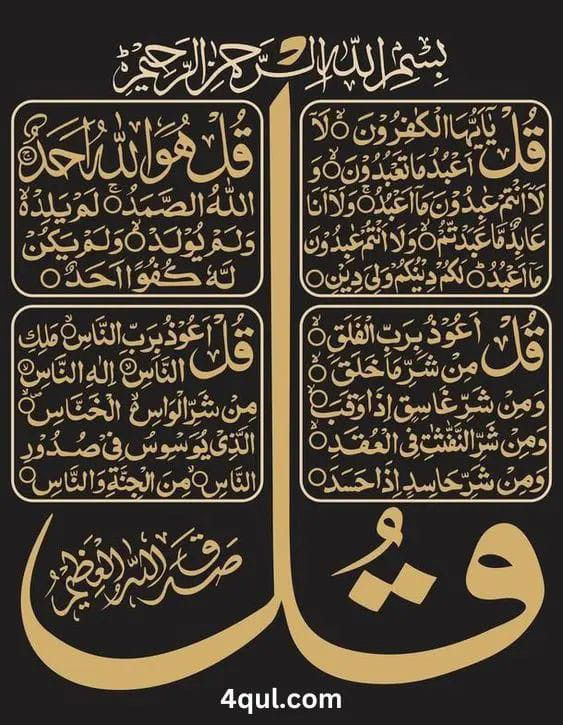 بِسْمِ اللهِ الرَّحْمٰنِ الرَّحِيْمِ
قُلْ يٰٓاَيُّهَا الْكٰفِرُوْنَ ○ لَآ
اَعْبُدُ مَا تَعْبُدُوْنَ ○ وَ
لَآ اَنْتُمْ عٰبِدُوْنَ مَآ اَعْبُدُ ○ وَلَآ اَنَا
عَابِدٌ مَّا عَبَدْتُّمْ ○ وَلَآ اَنْتُمْ عٰبِدُوْنَ
مَآ اَعْبُدُ ○ لَكُمْ دِيْنُكُمْ وَلِيَ دِيْنِ ○
قُلْ هُوَ اللهُ اَحَدٌ ○
اَللهُ الصَّمَدُ ○ لَمْ يَلِدْ ○
وَلَمْ يُوْلَدْ ○ وَلَمْ يَكُنْ
لَّهٗ كُفُوًا اَحَدٌ ○
قُلْ اَعُوْذُ بِرَبِّ الْفَلَقِ ○
مِنْ شَرِّ مَا خَلَقَ ○
وَمِنْ شَرِّ غَاسِقٍ اِذَا وَقَبَ ○
وَمِنْ شَرِّ النَّفّٰثٰتِ فِي الْعُقَدِ ○
وَمِنْ شَرِّ حَاسِدٍ اِذَا حَسَدَ ○
قُلْ اَعُوْذُ بِرَبِّ النَّاسِ ○ مَلِكِ
النَّاسِ ○ اِلٰهِ النَّاسِ ○
مِنْ شَرِّ الْوَاسِ الْخَنَّاسِ ○
الَّذِيْ يُوَسْوِسُ فِيْ صُدُوْرِ
النَّاسِ ○ مِنَ الْجِنَّةِ وَالنَّاسِ ○
قُل
صَدَقَ اللهُ الْعَظِيْم
4qul.com